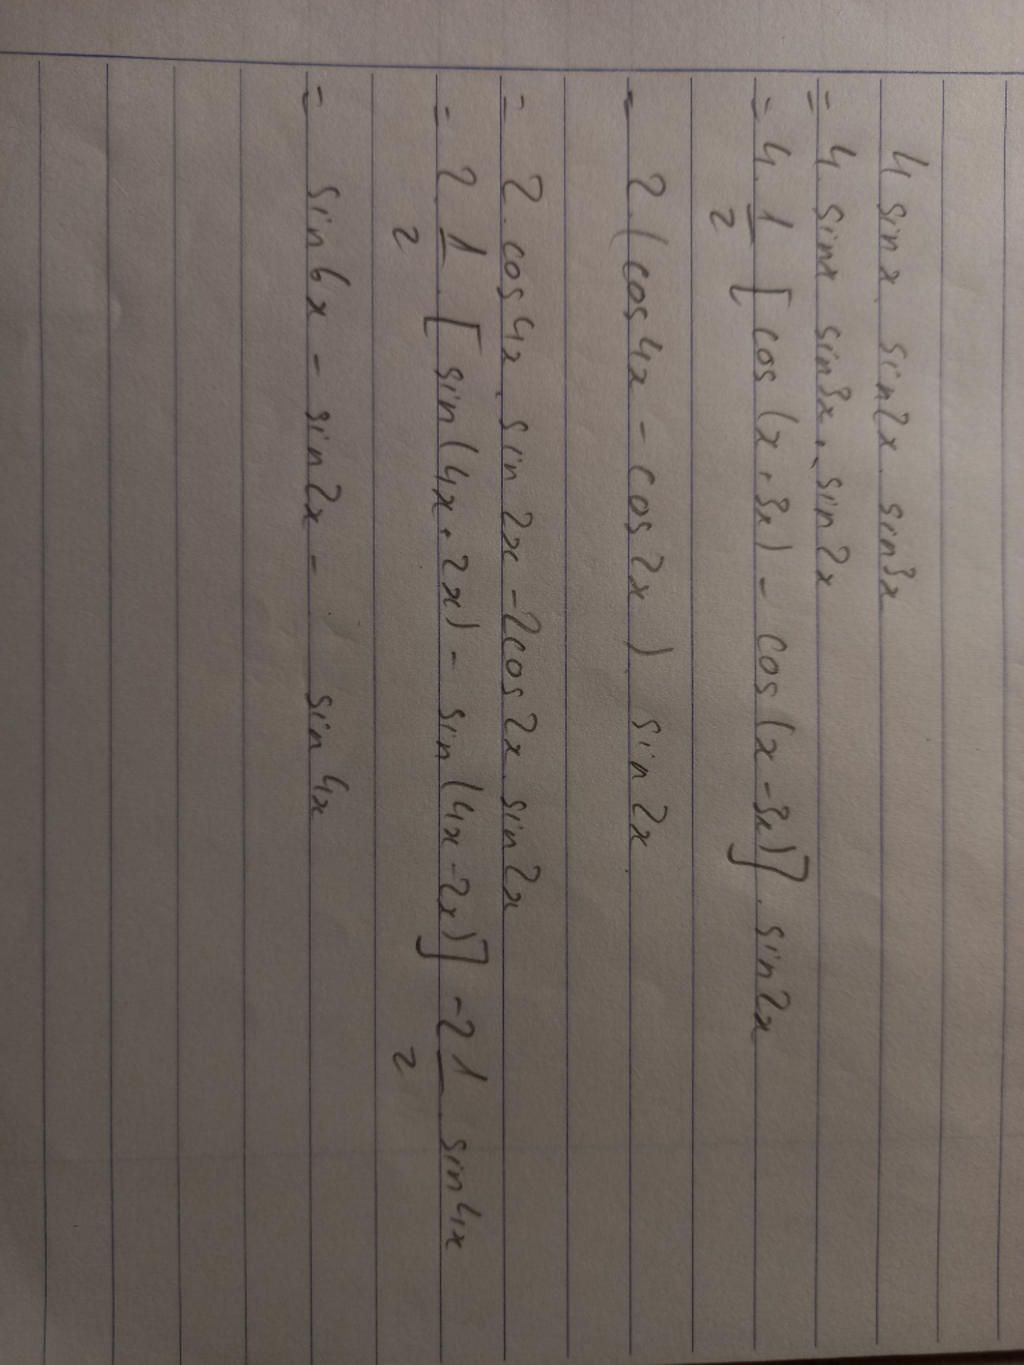 4 sinx. sin2x. sin3x
= 4. sinx sin3x. sin2x
= 4. 1/2 [cos(x+3x) - cos(x-3x)]. sin2x
= 2. (cos4x - cos2x) sin2x
= 2. cos4x. sin2x - 2cos2x. sin2x
= 2. 1/2 . [sin(4x+2x) - sin(4x-2x)] - 2 1/2 . sin4x
= sin6x - sin2x - sin4x